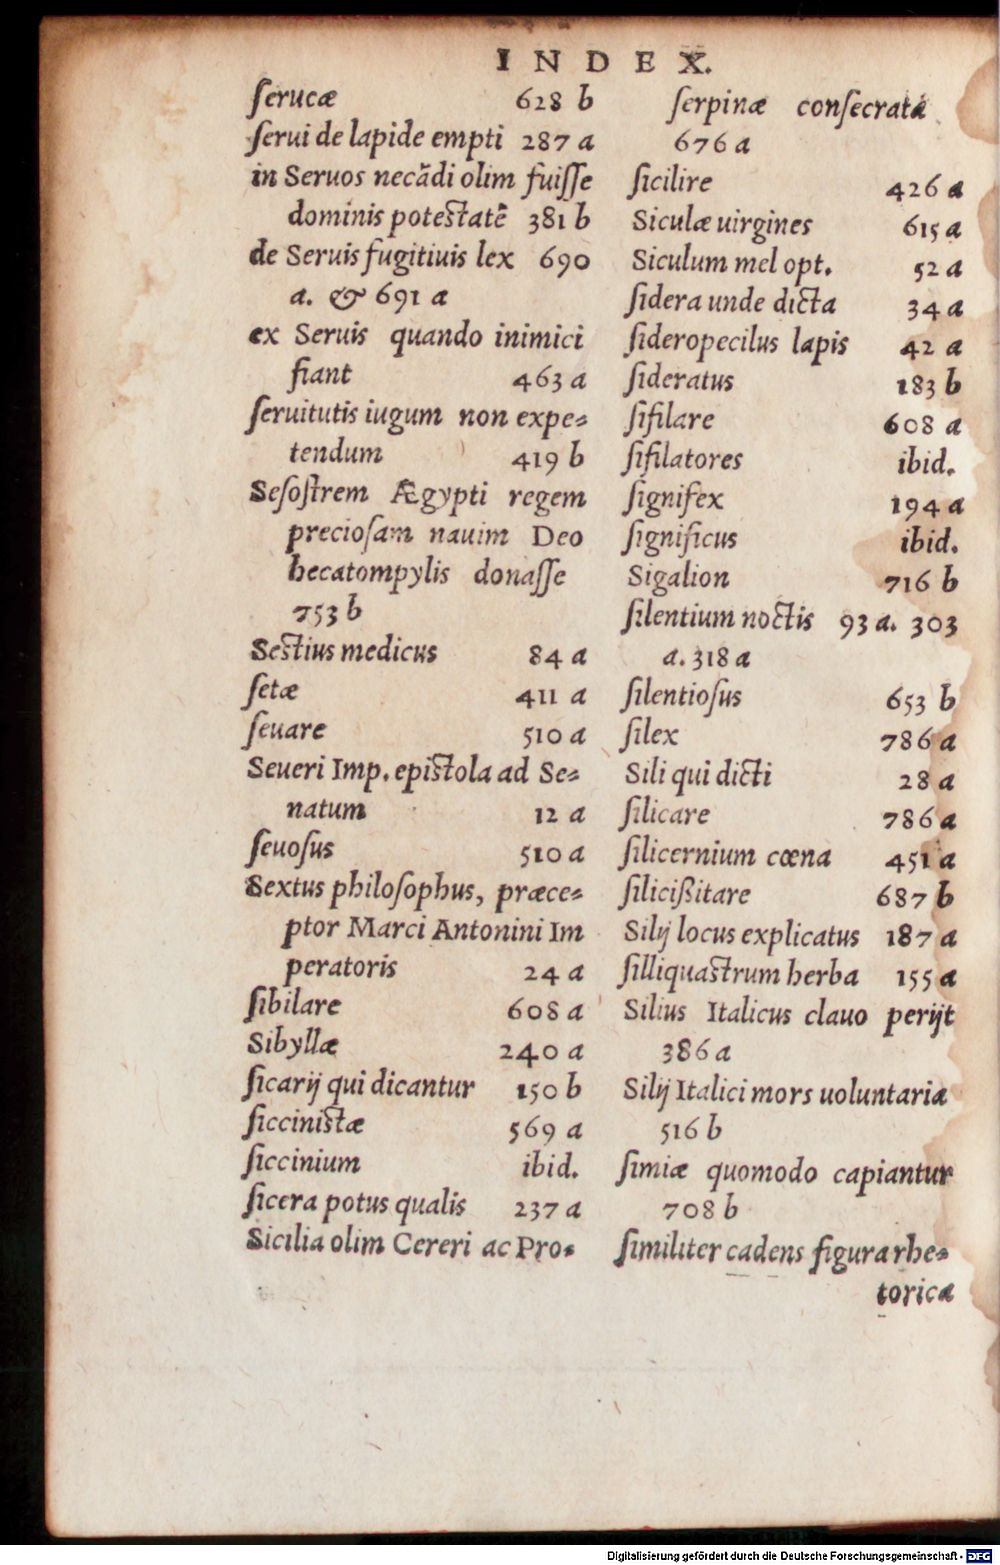 INDEX.
ſerucæ 628 b
ſerui de lapide empti 287 a
in Seruos necãdi olim fuiſſe
dominis poteſtatẽ 381 b
de Seruis fugitiuis lex 690
a. & 691 a
ex Seruis quando inimici
fiant 463 a
ſeruitutis iugum non expe=
tendum 419 b
Seſoſtrem Ægypti regem
precioſam nauim Deo
hecatompylis donaſſe
753 b
Seſtius medicus 84 a
ſetæ 411 a
ſeuare 510 a
Seueri Imp. epiſtola ad Se=
natum 12 a
ſeuoſus 510 a
Sextus philoſophus, præce=
ptor Marci Antonini Im
peratoris 24 a
ſibilare 608 a
Sibyllæ 240 a
ſicarij qui dicantur 150 b
ſicciniſtæ 569 a
ſiccinium ibid.
ſicera potus qualis 237 a
Sicilia olim Cereri ac Pro=
ſerpinæ conſecrata
676 a
ſicilire 426 a
Siculæ uirgines 615 a
Siculum mel opt. 52 a
ſidera unde dicta 34 a
ſideropecilus lapis 42 a
ſideratus 183 b
ſifilare 608 a
ſifilatores ibid.
ſignifex 194 a
ſignificus ibid.
Sigalion 716 b
ſilentium noctis 93 a. 303
a. 318 a
ſilentioſus 653 b
ſilex 786 a
Sili qui dicti 28 a
ſilicare 786 a
ſilicernium cœna 451 a
ſiliciſſitare 687 b
Silij locus explicatus 187 a
ſilliquaſtrum herba 155 a
Silius Italicus clauo perijt
386 a
Silij Italici mors uoluntaria
516 b
ſimiæ quomodo capiantur
708 b
ſimiliter cadens figura rhe=
torica
Digitalisierung gefördert durch die Deutsche Forschungsgemeinschaft - DFG